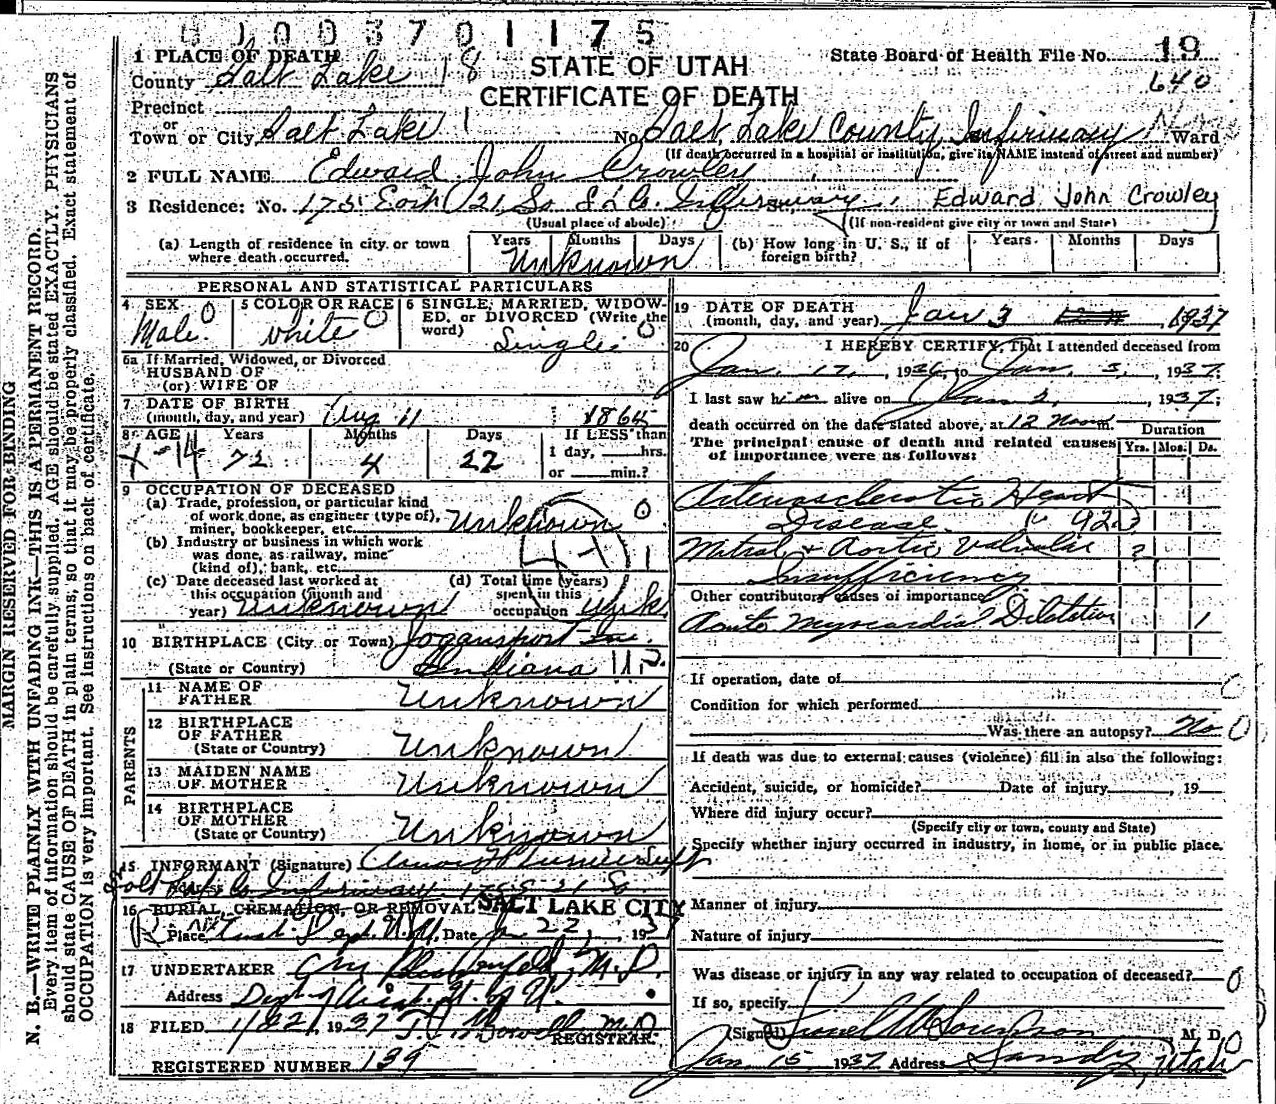 1003701175
1 PLACE OF DEATH
County Salt Lake 18
STATE OF UTAH
CERTIFICATE OF DEATH
State Board of Health File No. 19
640
Precinct
or
Town or City Salt Lake 1 No. Salt Lake County Infirmary Ward
(If death occurred in a hospital or institution, give its NAME instead of street and number)
2 FULL NAME Edward John Crowley
3 Residence: No. 175 East 21 So. S L Co. Infirmary, Edward John Crowley
(Usual place of abode) (If non-resident give city or town and State)
(a) Length of residence in city or town where death occurred. Years Months Days Unknown (b) How long in U. S., if of foreign birth? Years Months Days
PERSONAL AND STATISTICAL PARTICULARS
4 SEX Male 0
5 COLOR OR RACE White 0
6 SINGLE, MARRIED, WIDOWED, OR DIVORCED (Write the word) Single 0
6a If Married, Widowed, or Divorced
HUSBAND OF
(or) WIFE OF
7 DATE OF BIRTH
(month, day, and year) Aug 11 1864
8 AGE Years Months Days If LESS than
72 4 22 1 day, hrs.
or min.?
9 OCCUPATION OF DECEASED
(a) Trade, profession, or particular kind
of work done, as engineer (type of),
miner, bookkeeper, etc. Unknown 0
(b) Industry or business in which work
was done, as railway, mine
(kind of), bank, etc.
(c) Date deceased last worked at
this occupation (month and
year) Unknown
(d) Total time (years)
spent in this
occupation Unk
10 BIRTHPLACE (City or Town) Logansport Ind.
(State or Country) Indiana U.S.
PARENTS
11 NAME OF
FATHER Unknown
12 BIRTHPLACE
OF FATHER
(State or Country) Unknown
13 MAIDEN NAME
OF MOTHER Unknown
14 BIRTHPLACE
OF MOTHER
(State or Country) Unknown
15 INFORMANT (Signature)
Salt Lake Co Infirmary 175 E 21 So.
16 BURIAL, CREMATION, OR REMOVAL SALT LAKE CITY
Place Anat. Dept. U.U. Date Jan 22, 1937
17 UNDERTAKER M.D.
Address Dept of Anat. U. of U.
18 FILED 1/22, 1937 M.D.
REGISTRAR.
REGISTERED NUMBER 139
19 DATE OF DEATH
(month, day, and year) Jan 3, 1937
20 I HEREBY CERTIFY, That I attended deceased from
Jan. 17, 1936, to Jan. 3, 1937.
I last saw him alive on Jan 2, 1937;
death occurred on the date stated above, at 12 Noon m.
The principal cause of death and related causes
of importance were as follows:
Duration
Yrs. Mos. Ds.
Arteriosclerotic Heart
Disease 92
Mitral & Aortic Valvular ?
Insufficiency
Other contributory causes of importance
Acute Myocardial Dilatation 1
If operation, date of
Condition for which performed
Was there an autopsy? No 0
If death was due to external causes (violence) fill in also the following:
Accident, suicide, or homicide? Date of injury, 19
Where did injury occur?
(Specify city or town, county and State)
Specify whether injury occurred in industry, in home, or in public place.
Manner of injury
Nature of injury
Was disease or injury in any way related to occupation of deceased? 0
If so, specify
(Signed) M. D. 0
Jan 15 1937 Address Sandy, Utah
MARGIN RESERVED FOR BINDING
N. B.—WRITE PLAINLY WITH UNFADING INK—THIS IS A PERMANENT RECORD.
Every item of information should be carefully supplied. AGE should be stated EXACTLY. PHYSICIANS
should state CAUSE OF DEATH in plain terms, so that it may be properly classified. Exact statement of
OCCUPATION is very important. See instructions on back of certificate.